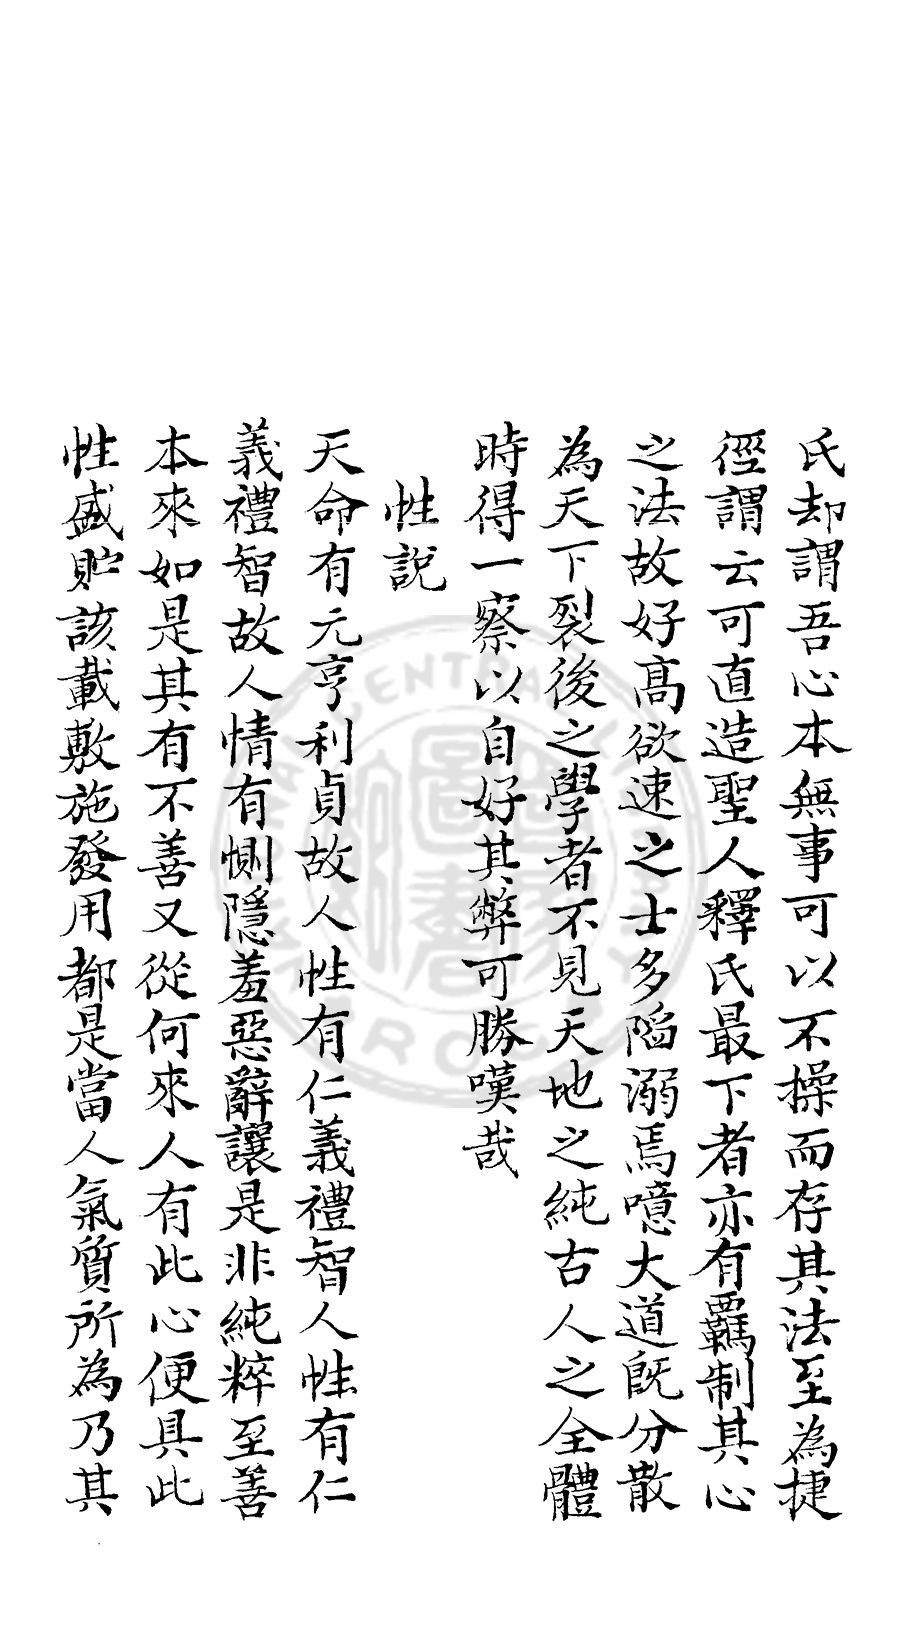 氏却謂吾心本無事可以不操而存其法至為捷
徑謂云可直造聖人釋氏最下者亦有羈制其心
之法故好髙欲速之士多陷溺焉噫大道旣分散
為天下裂後之學者不見天地之純古人之全體
時得一察以自好其弊可勝嘆哉
性說
天命有元亨利貞故人性有仁義禮智人性有仁
義禮智故人情有惻隱羞惡辭讓是非純粹至善
本來如是其有不善又從何來人有此心便具此
性盛貯該載敷施發用都是當人氣質所為乃其
CENTRA
圖書